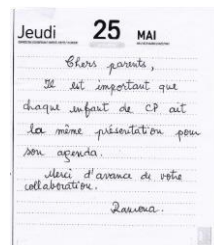 Jeudi 25 MAI
Chers parents,
Il est important que
chaque enfant de CP ait
la même présentation pour
son agenda.
Merci d'avance de votre
collaboration.